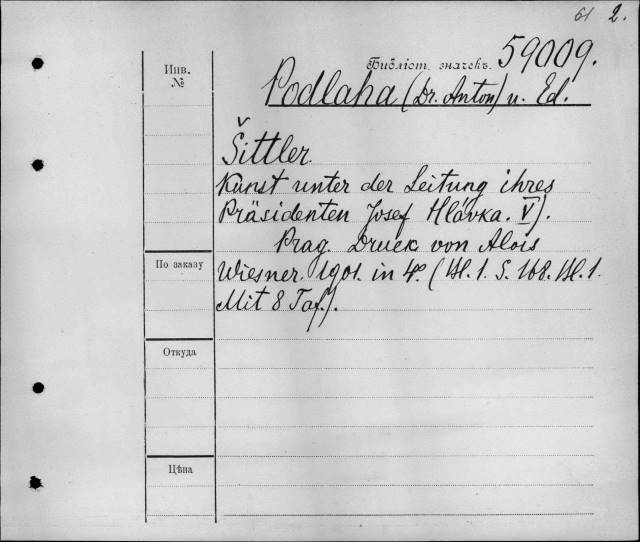 61 2.
Инв.
№
Библіот. значекъ. 59009.
Podlaha (Dr. Anton) u. Ed.
Šittler
Kunst unter der Leitung ihres
Präsidenten Josef Hlávka. V).
Prag. Druck von Alois
По заказу
Wiesner. 1901. in 4º. (Bl. 1. S. 168. Bl. 1.
Mit 8 Taf.).
Откуда
Цѣна